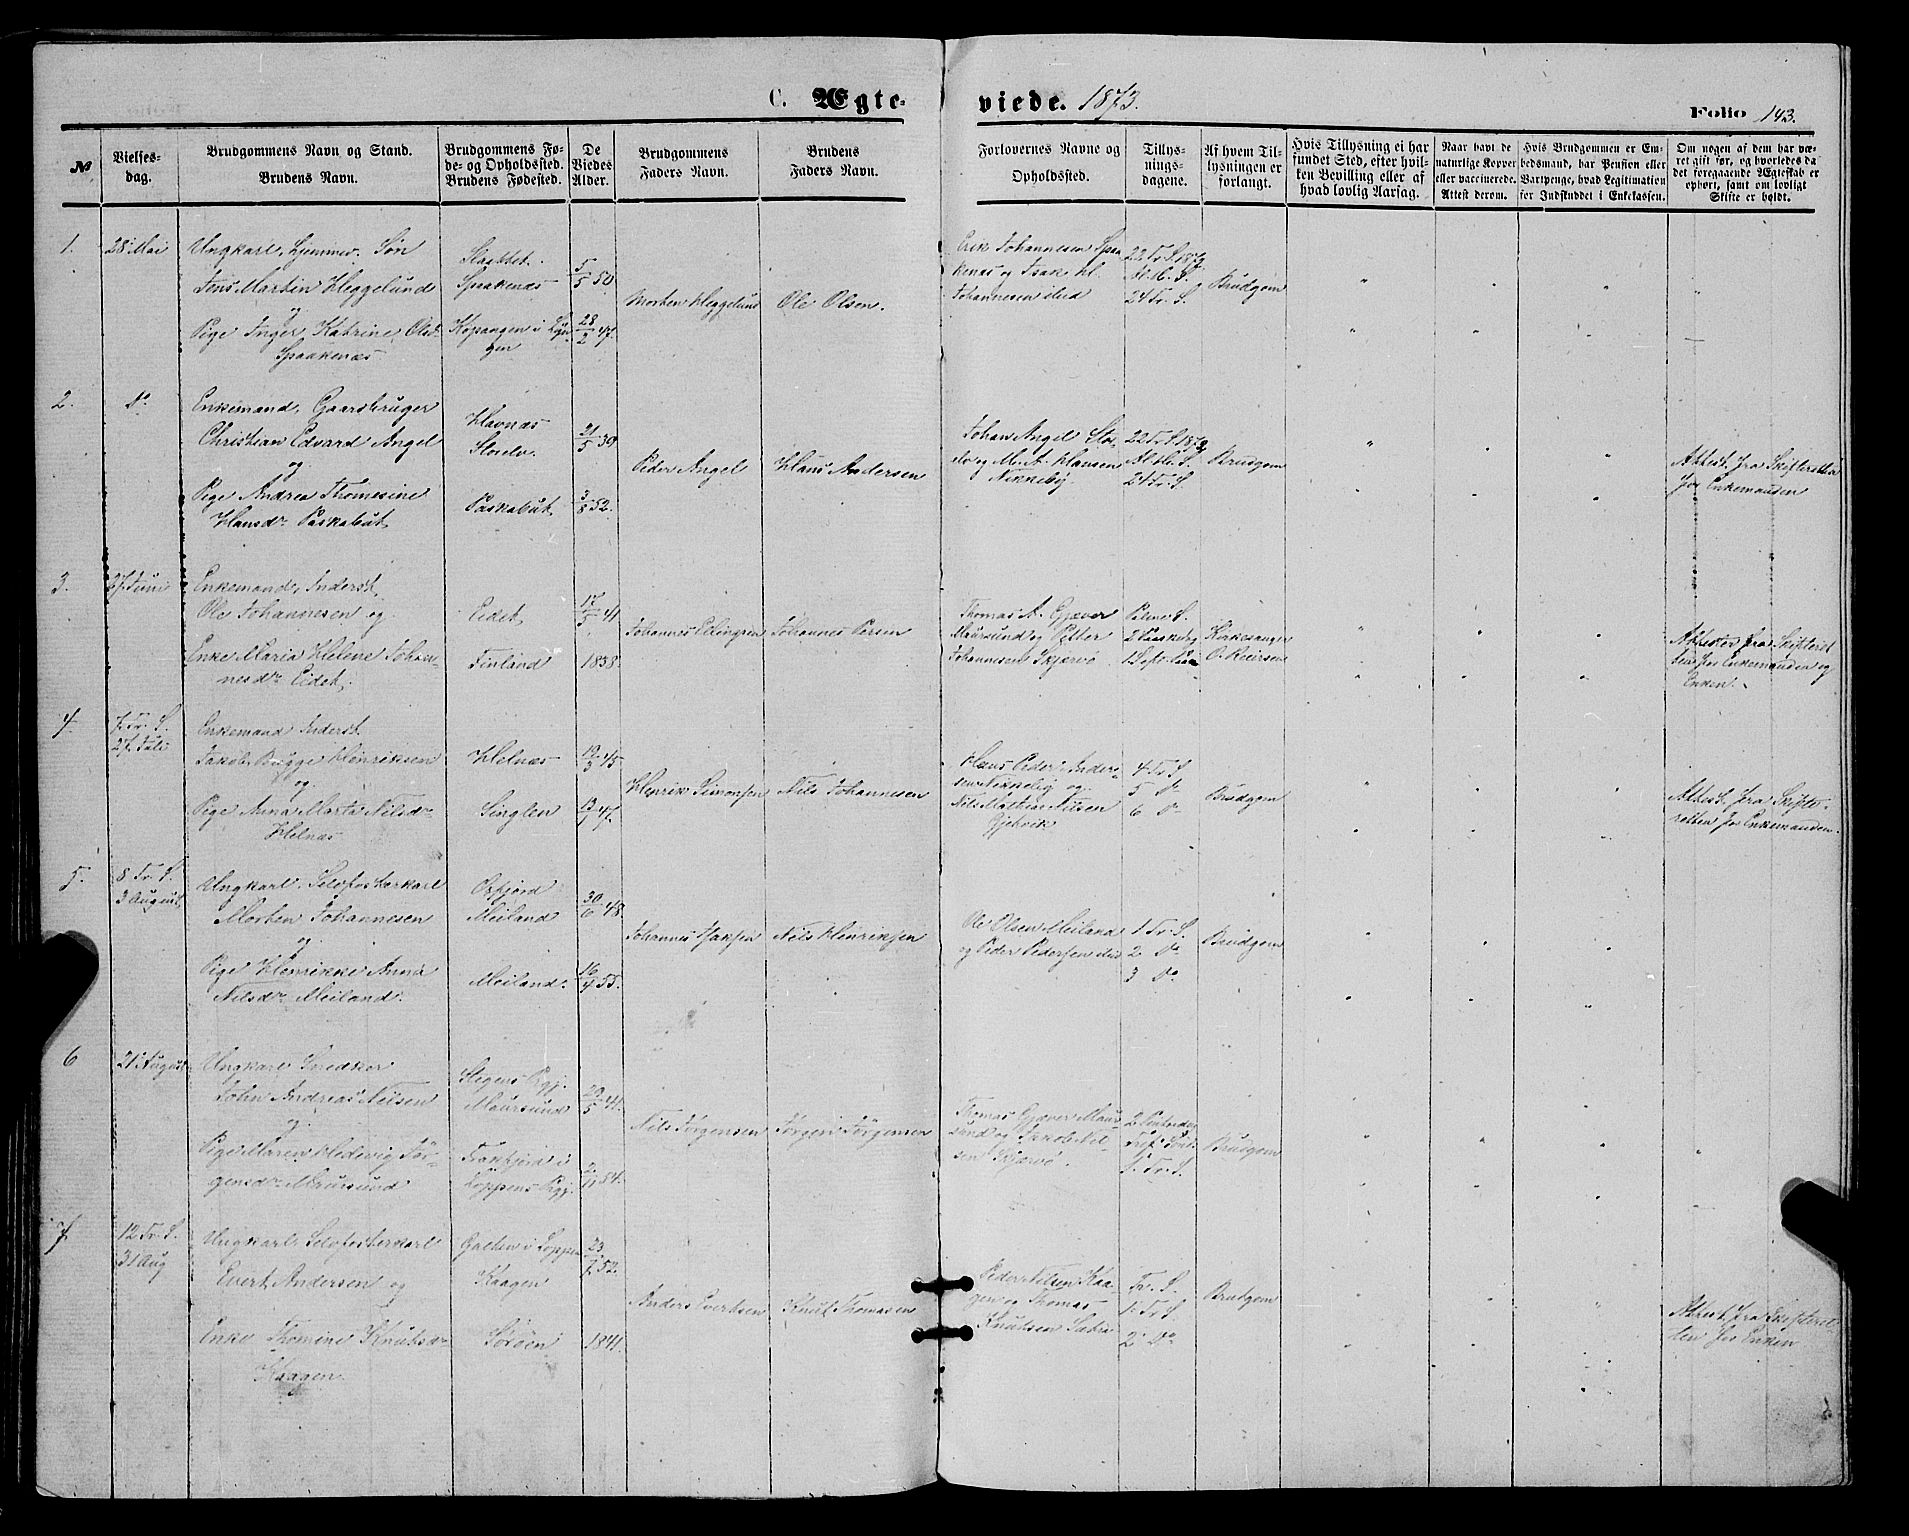 C. Ægte-
viede. 1873.
Folio 143.
№
Vielses-
dag.
Brudgommens Navn og Stand.
Brudens Navn.
Brudgommens Fø-
de- og Opholdssted.
Brudens Fødested.
De
Viedes
Alder.
Brudgommens
Faders Navn.
Brudens
Faders Navn.
Forlovernes Navne og
Opholdssted.
Tillys-
nings-
dagene.
Af hvem Til-
lysningen er
forlangt.
Hvis Tillysning ei har
fundet Sted, efter hvil-
ken Bevilling eller af
hvad lovlig Aarsag.
Naar havt de
naturlige Kopper
eller vaccinerede.
Attest derom.
Hvis Brudgommen er Em-
bedsmand, har Pension eller
Vartpenge, hvad Legitimation
for Indskuddet i Enkekassen.
Om nogen af dem har væ-
ret gift før, og hvorledes da
det foregaaende Ægteskab er
ophørt, samt om lovligt
Skifte er holdt.
1.
28 Mai
Ungkarl, hjemmev. Søn
Jens Martin Heggelund
og
Pige Inger Katrine Olsd.
Spaakenæs
Slaattet.
Spaakenæs
Kopangen i Lyn-
gen
5/5 50
28/2 47.
Morten Heggelund
Ole Olsen.
Erik Johannesen Spaa-
kenæs og Isak H.
Johannesen ibid
22 Tr. S. 1872
Al. H. S.
24 Tr. S.
Brudgom
2.
Do
Enkemand, Gaardbruger
Christian Edvard Angel
og
Pige Andrea Thomesine
Hansdr. Paskabut
Havnæs
Storelv.
Paskabut
21/5 39
3/8 52.
Peder Angel
Hans Andersen
Johan Angel Stor-
elv og M. A. Hansen
Nikkeby
22 Tr. S. 1872
Al. H. S.
24 Tr. S.
Brudgom
Attest fra Skifteretten
for Enkemanden
3.
27 Juni
Enkemand, Inderst
Ole Johannesen og
Enke Maria Helene Johan-
nesdr. Eidet
Eidet
Finland
17/5 41
1838.
Johannes Ellingsen
Johannes Persen
Thomas A. Gjæver
Maursund og Petter
Johannesen Skjærvø
Palme S.
2 Paaskedag
1 S. efter
Kirkesanger
O. Reiersen
Attester fra Skifteret-
ten for Enkemanden og
Enken.
4.
7. Tr. S.
27 Juli
Enkemand Inderst
Jakob Bugge Henriksen
og
Pige Anna Marta Nilsdr.
Helnæs
Helnæs
Singlen
19/3 45
13/7 47.
Henrik Simonsen
Nils Johannesen
Hans Peder Ander-
sen Nikkeby og
Nils Mathias Nilsen
Gjøvik
4 Tr. S
5 Do
6 Do
Brudgom
Attest fra Skifte-
retten for Enkemanden.
5.
8 Tr. S.
3 August
Ungkarl, Selvfosterkarl
Morten Johannesen
og
Pige Henrikke Anna
Nilsdr. Meiland.
Oxfjord
Meiland
Meiland.
30/6 48.
16/4 55.
Johannes Isaksen
Nils Henriksen
Ole Olsen Meiland
og Peder Pedersen ibid
1 Tr. S.
2 Do
3 Do
Brudgom
6
21 August
Ungkarl Snedker
John Andreas Nilsen
og
Pige Maren Hedevig Jør-
gensdr. Maursund
Stegens Prgj.
Maursund
Frakfjord i
Loppens Prgj.
29/5 41.
2/11 54.
Nils Jørgensen
Jørgen Jørgensen
Thomas Gjæver Maur-
sund og Jakob Nil-
sen Skjærvø.
2 Pintsedag
Tref. Sønd.
1. Tr. S.
Brudgom
7
12 Tr. S.
31 Aug
Ungkarl, Selvfosterkarl
Evert Andersen og
Enke Thomine Knutsdr.
Kaagen.
Galten i Loppen
Kaagen
Sørøen
23/7 52.
1841.
Anders Evertsen
Knut Thomasen
Peder Nilsen Kaa-
gen og Thomas
Knutsen
Tr. S.
1. Tr. S
2 Do
Brudgom
Attest fra Skifteret-
ten for Enken